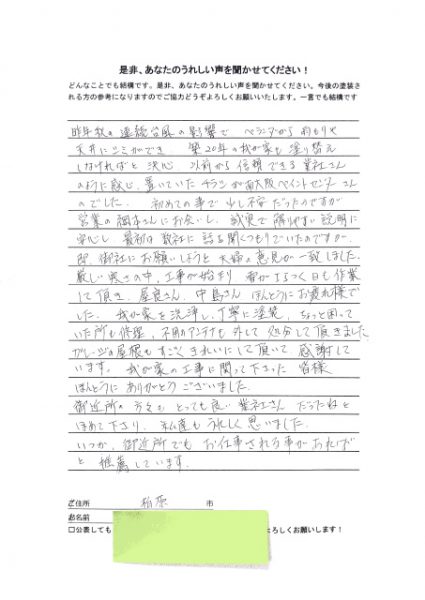 是非、あなたのうれしい声を聞かせてください！
どんなことでも結構です。是非、あなたのうれしい声を聞かせてください。今後の塗装さ
れる方の参考になりますのでご協力どうぞよろしくお願いいたします。一言でも結構です
昨年秋の 連続台風の影響で ベランダから雨もりや
天井にシミができ、 築20年の我が家も塗り替え
しなければと決心 以前から信頼できる業社さん
のように感じ、置いていたチラシが南大阪ペイントセンターさん
のでした。 初めての事で少し不安だったのですが
営業の さんにお会いし、誠実で解りやすい説明に
安心し 最初は数社に話を聞くつもりでいたのですが、
即、御社にお願いしようと夫婦の意見が一致しました。
厳しい寒さの中、工事が始まり 日も作業
して頂き、屋良さん、中島さん ほんとうにお疲れ様で
した。 我が家を洗浄し、丁寧に塗装、ちょっと困って
いた所も修理、不用のアンテナも外して処分して頂きました
ガレージの屋根もすごくきれいにして頂いて、感謝して
います。 我が家の工事に関って下さった 皆様
ほんとうにありがとうございました。
御近所の方々も とっても良い 業社さん だったねと
ほめて下さり、私達もうれしく思いました。
いつか、御近所でも お仕事される事があれば
と 推薦しています。
ご住所 柏原 市
お名前
□公表しても よろしくお願いします！